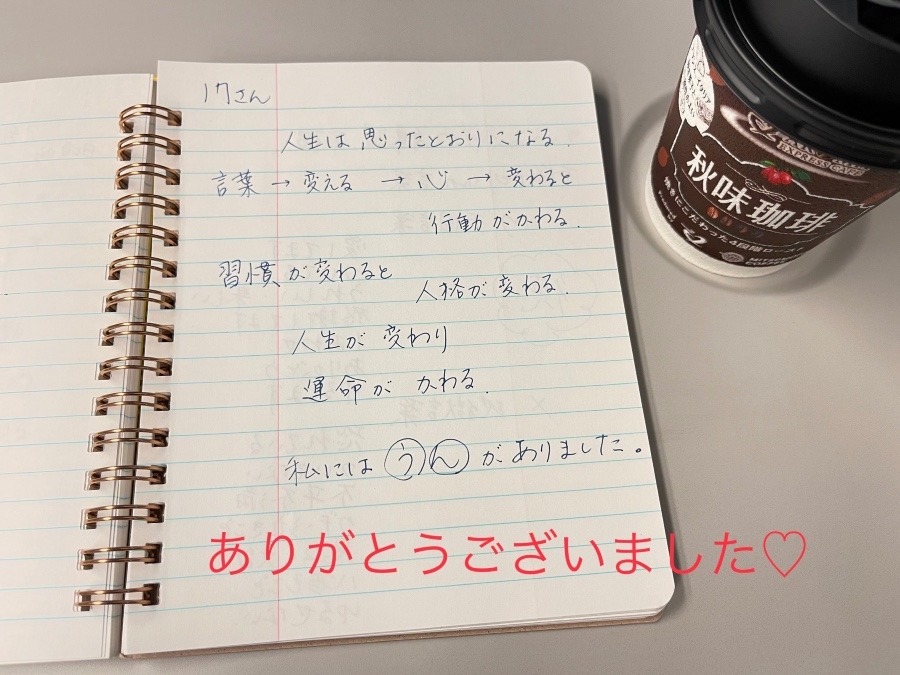 17さん
人生は思ったとおりになる.
言葉→変える→心→変わると
行動がかわる.
習慣が変わると
人格が変わる.
人生が変わり
運命がかわる.
私にはうんがありました。
ありがとうございました♡
EXPRESS CAFE
秋味珈琲
焼きにこだわった4段階ロースト